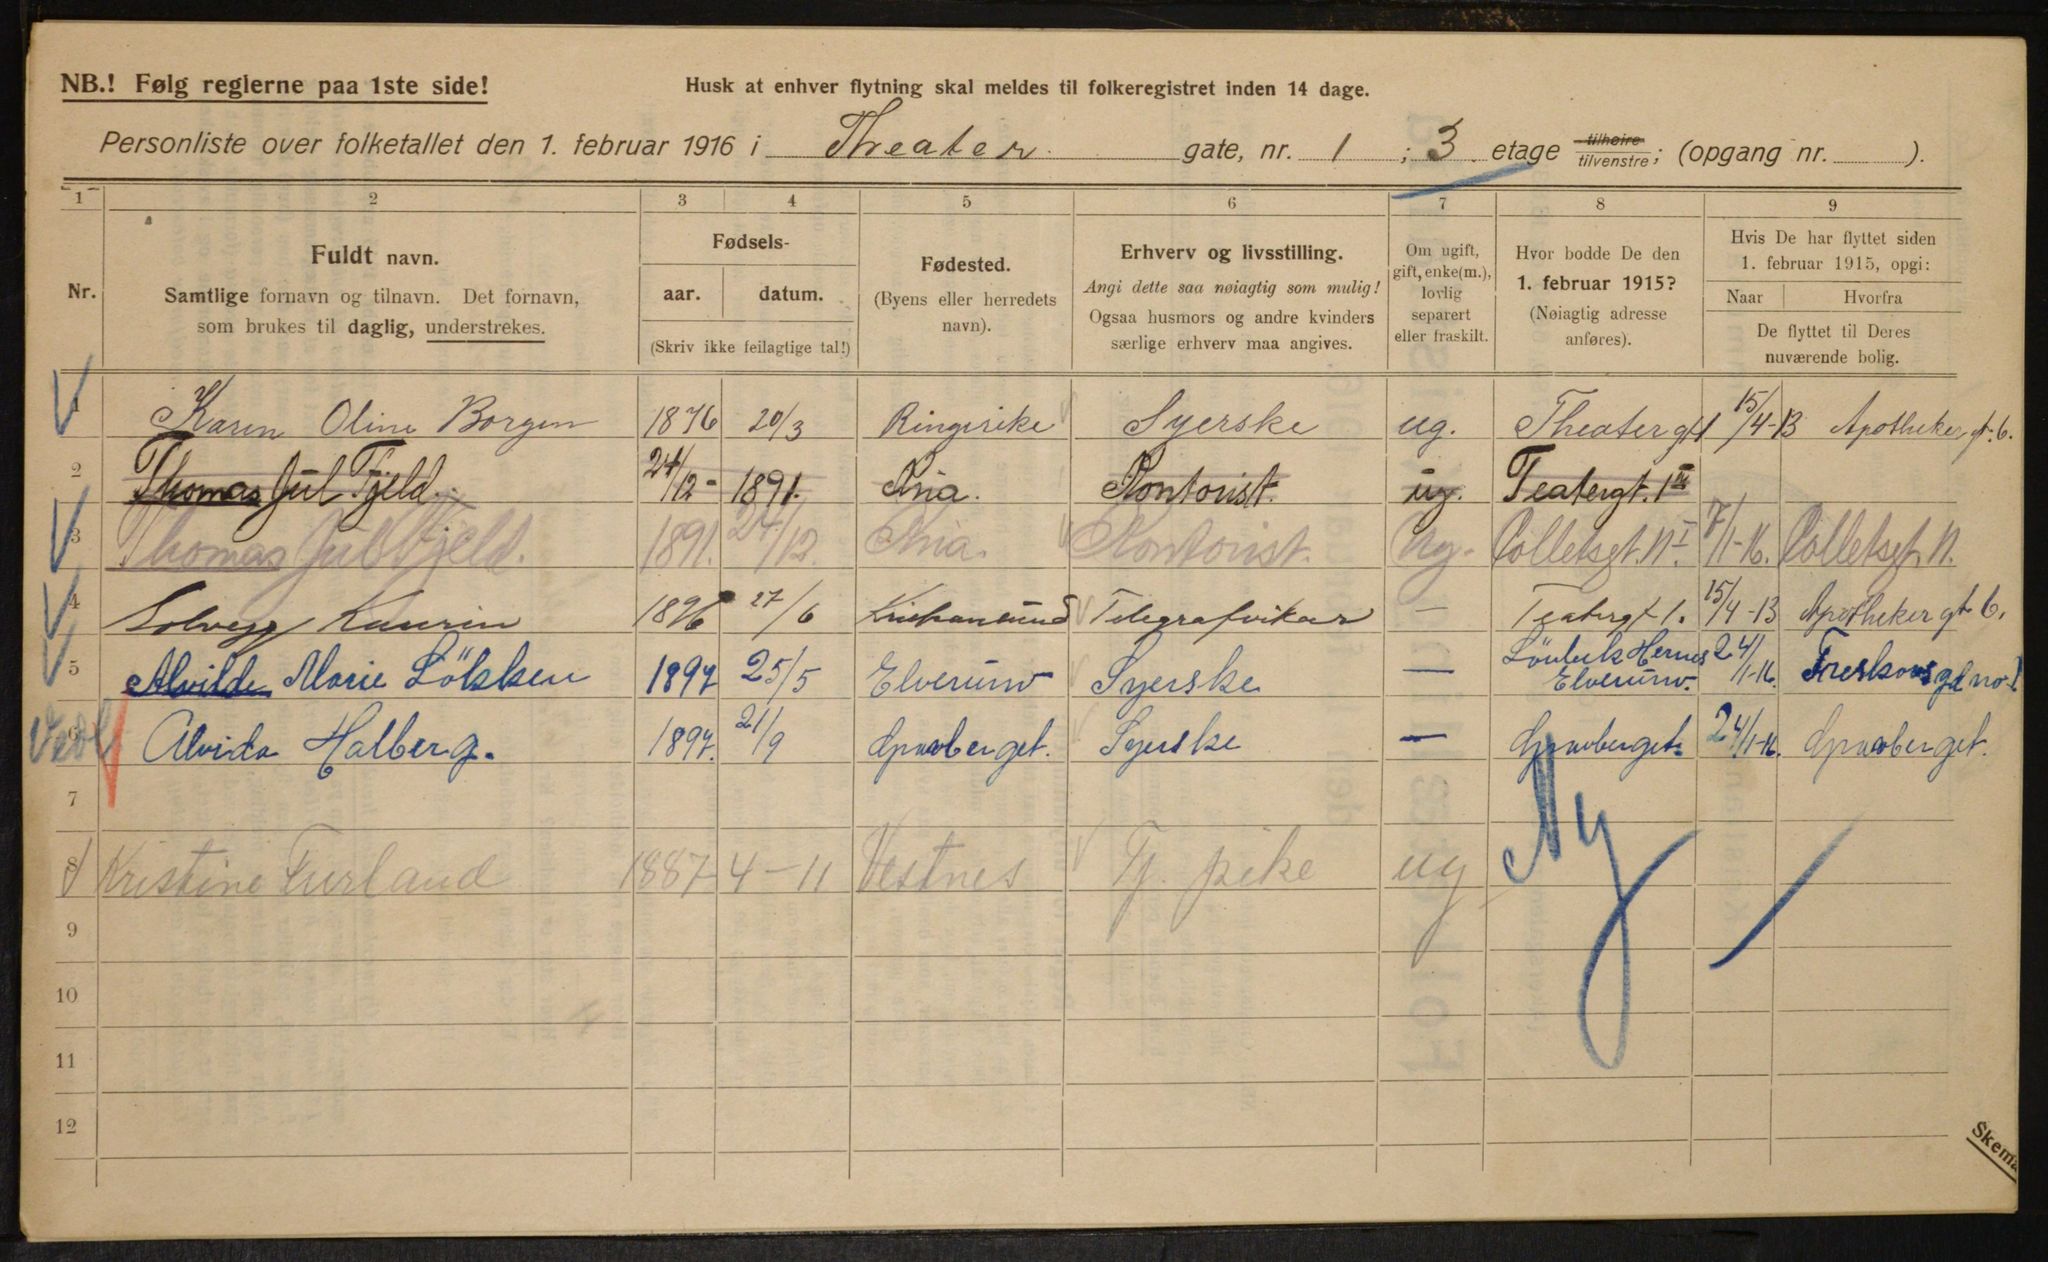 NB.! Følg reglerne paa 1ste side!
Husk at enhver flytning skal meldes til folkeregistret inden 14 dage.
Personliste over folketallet den 1. februar 1916 i Theater gate, nr. 1 ; 3 etage tilhøire tilvenstre; (opgang nr. ).
1 2 3 4 5 6 7 8 9
Nr.
Fuldt navn.
Samtlige fornavn og tilnavn. Det fornavn,
som brukes til daglig, understrekes.
Fødsels-
aar. datum.
(Skriv ikke feilagtige tal!)
Fødested.
(Byens eller herredets
navn).
Erhverv og livsstilling.
Angi dette saa nøiagtig som mulig!
Ogsaa husmors og andre kvinders
særlige erhverv maa angives.
Om ugift,
gift, enke(m.),
lovlig
separert
eller fraskilt.
Hvor bodde De den
1. februar 1915?
(Nøiagtig adresse
anføres).
Hvis De har flyttet siden
1. februar 1915, opgi:
Naar Hvorfra
De flyttet til Deres
nuværende bolig.
1 Karen Oline Borgen 1876 20/3 Ringerike Syerske ug. Theater gt 1 15/4-13 Apotheker gt. 6.
2 Thomas Jul Fjeld. 24/12- 1891. Kria. Kontorist. ug. Teatergt. 1 III
3 Thomas Jul Fjeld. 1891. 24/12. Kria. Kontorist. Ug. Colletsgt. 11 I 7/1-16. Colletsgt. 11.
4 Solveig Kaurin 1896 27/6 Kristiansund Telegrafvikar — Teatergt 1. 15/4-13 Apotheker gt 6.
5 Alvilde Marie Lökken 1897 25/5 Elverum Syerske — Hernes Elverum. 24/1-16. gt no 1
6 Alvida Halberg. 1897. 21/9 Spaaberget. Syerske — 24/1-16. Spaaberget.
7
8 Kristine Furland 1887 4-11 Vestnes Tj. pike ug Ny
9
10
11
12
Skema